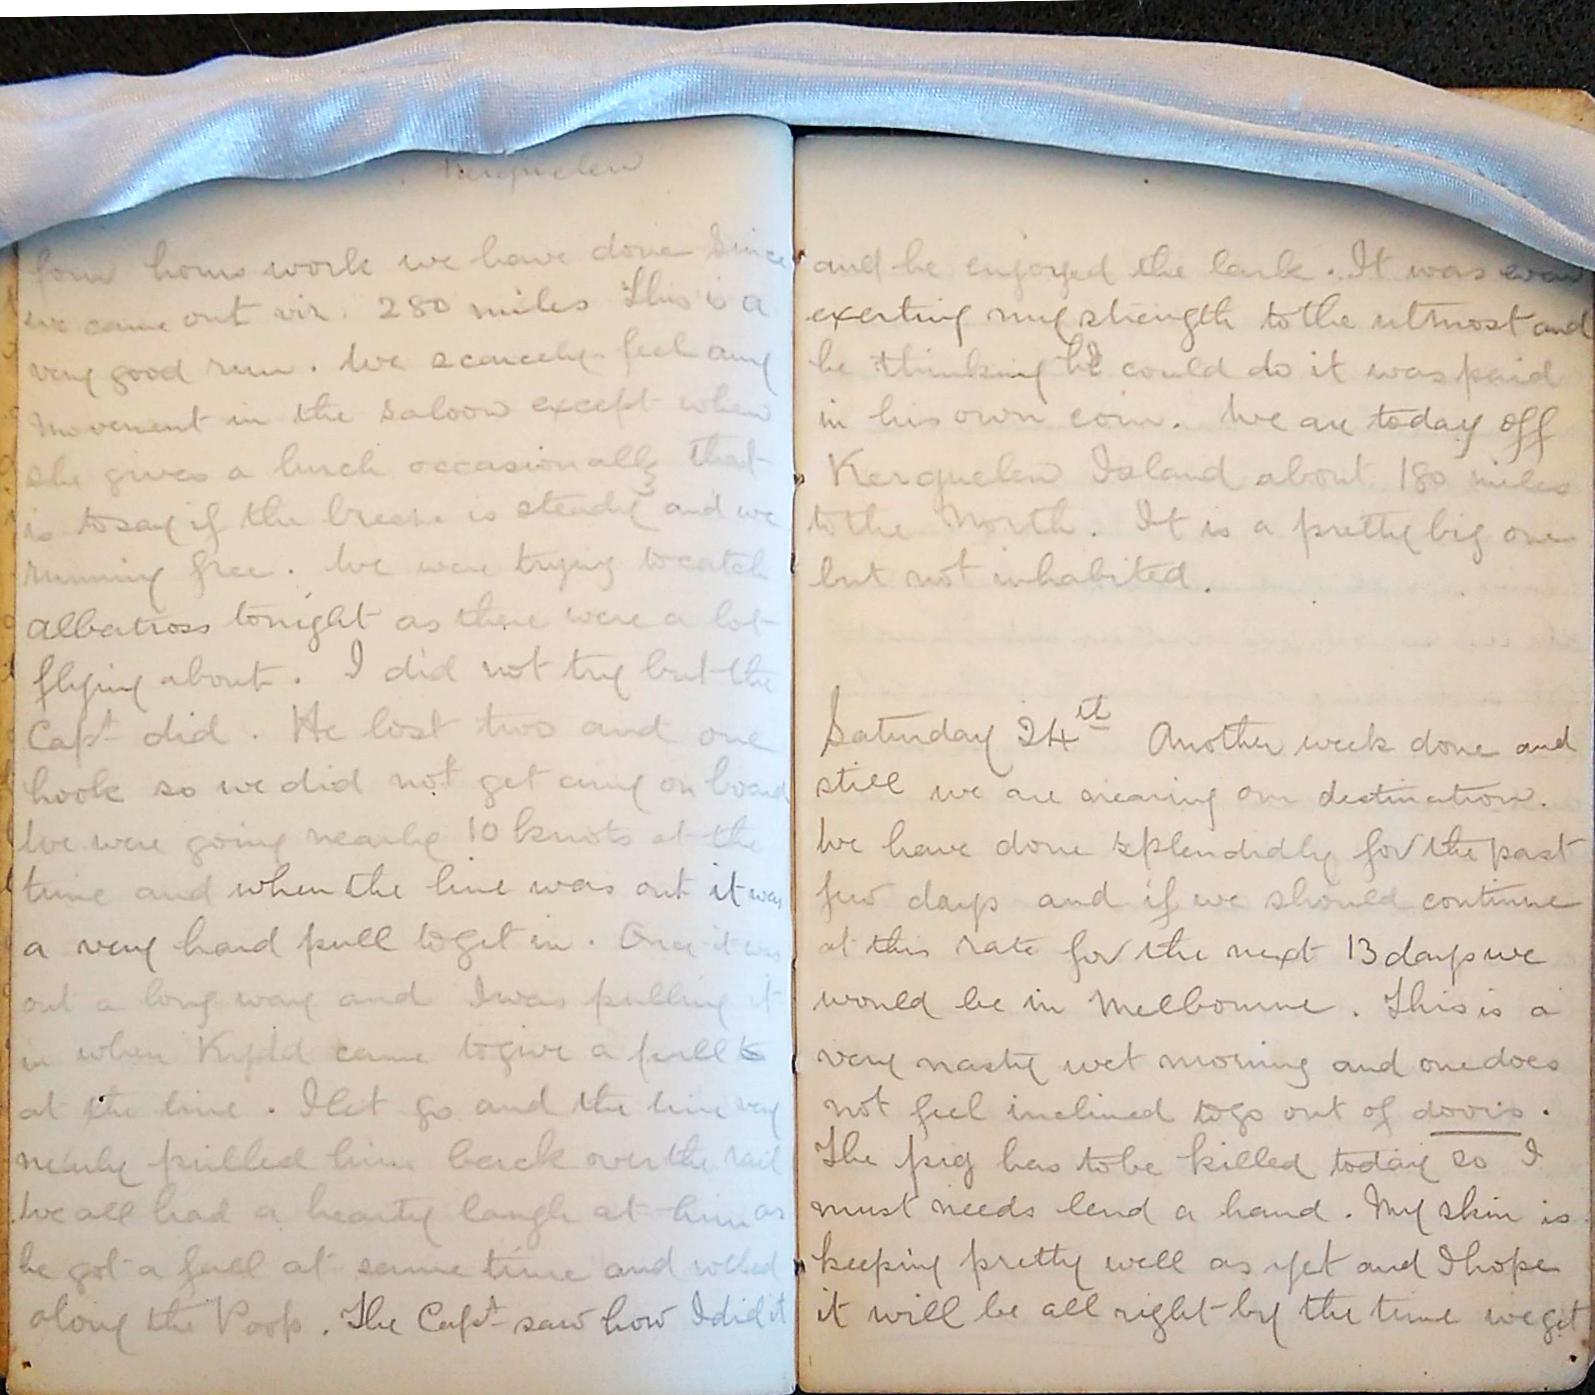 Kerguelen
four hours work we have done since
we came out viz. 280 miles This is a
very good run. We scarcely feel any
movement in the saloon except when
she gives a lurch occasionally that
is to say if the breeze is steady and we
running free. We were trying to catch
albatross tonight as there were a lot
flying about. I did not try but the
Capt did. He lost two and one
hook so we did not get any on board
We were going nearly 10 knots at the
time and when the line was out it was
a very hard pull to get in. Once it was
out a long way and I was pulling it
in when Kydd came to give a pull
at the line. I let go and the line very
nearly pulled him back over the rail
We all had a hearty laugh at him as
he got a fall at same time and rolled
along the Poop. The Capt saw how I did it
and he enjoyed the lark. It was even
exerting my strength to the utmost and
he thinking he could do it was paid
in his own coin. We are today off
Kerguelen Island about 180 miles
to the North. It is a pretty big one
but not inhabited.
Saturday 24th Another week done and
still we are nearing our destination.
We have done splendidly for the past
few days and if we should continue
at this rate for the next 13 days we
would be in Melbourne. This is a
very nasty wet morning and one does
not feel inclined to go out of doors.
The pig has to be killed today so I
must needs lend a hand. My skin is
keeping pretty well as yet and I hope
it will be all right by the time we get